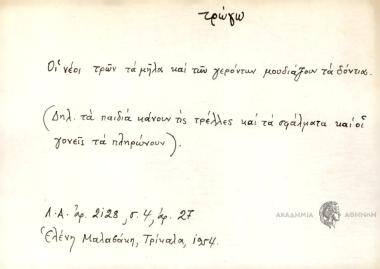 τρώγω
Οἱ νέοι τρῶν τά μῆλα καί τῶν γερόντων μουδιάζουν τά δόντια.
(Δηλ. τά παιδιά κάνουν τίς τρέλλες καί τά σφάλματα καί οἱ
γονεῖς τά πληρώνουν).
Λ.Α. ἀρ. 2128, σ. 4, ἀρ. 27
Ἑλένη Μαλασάκη, Τρίκαλα, 1954.
ΑΚΑΔΗΜΙΑ ΑΘΗΝΩΝ